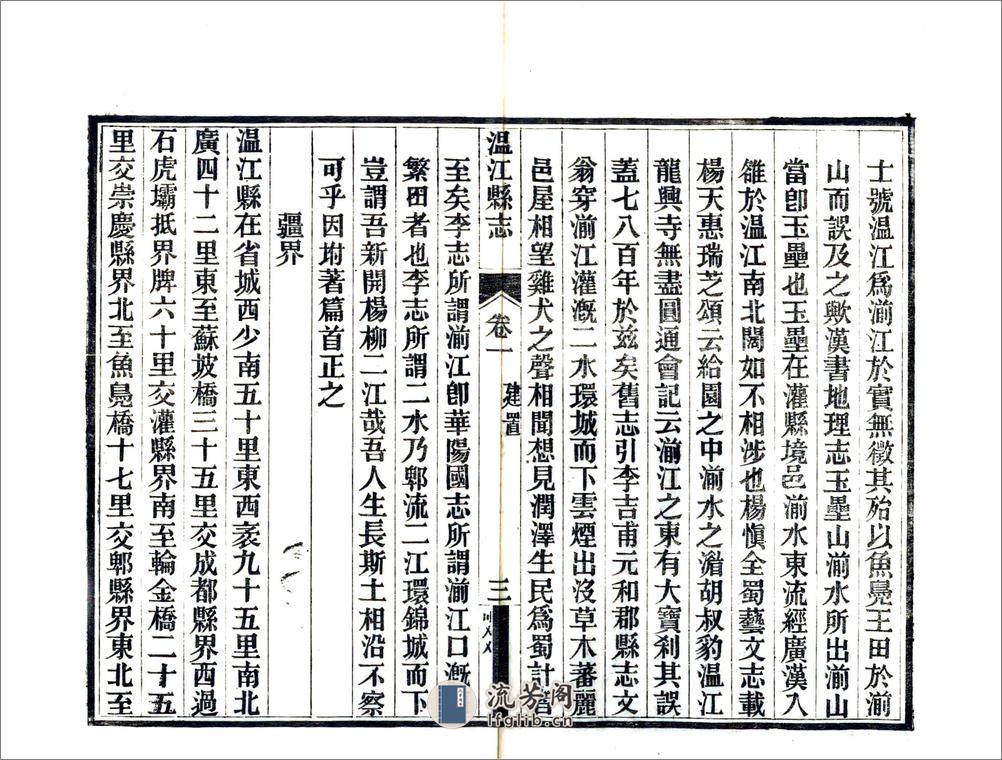 士號溫江爲湔江於實無徵其殆以魚鳧王田於湔
山而誤及之歟漢書地理志玉壘山湔水所出湔山
當卽玉壘也玉壘在灌縣境邑湔水東流經廣漢入
雒於溫江南北闊如不相涉也楊愼全蜀藝文志載
楊天惠瑞芝頌云給園之中湔水之湝胡叔豹溫江
龍興寺無盡圓通會記云湔江之東有大寶刹其誤
蓋七八百年於玆矣舊志引李吉甫元和郡縣志文
翁穿湔江灌漑二水環城而下雲煙出沒草木蕃麗
邑屋相望雞犬之聲相聞想見潤澤生民爲蜀計者
溫江縣志
卷一
建置
三
至矣李志所謂湔江卽華陽國志所謂湔江口漑
繁田者也李志所謂二水乃郫流二江環錦城而下
豈謂吾新開楊柳二江哉吾人生長斯土相沿不察
可乎因坿著篇首正之
疆界
溫江縣在省城西少南五十里東西袤九十五里南北
廣四十二里東至蘇坡橋三十五里交成都縣界西過
石虎壩抵界牌六十里交灌縣界南至輪金橋二十五
里交崇慶縣界北至魚鳧橋十七里交郫縣界東北至
流芳阁
lfglib.cn